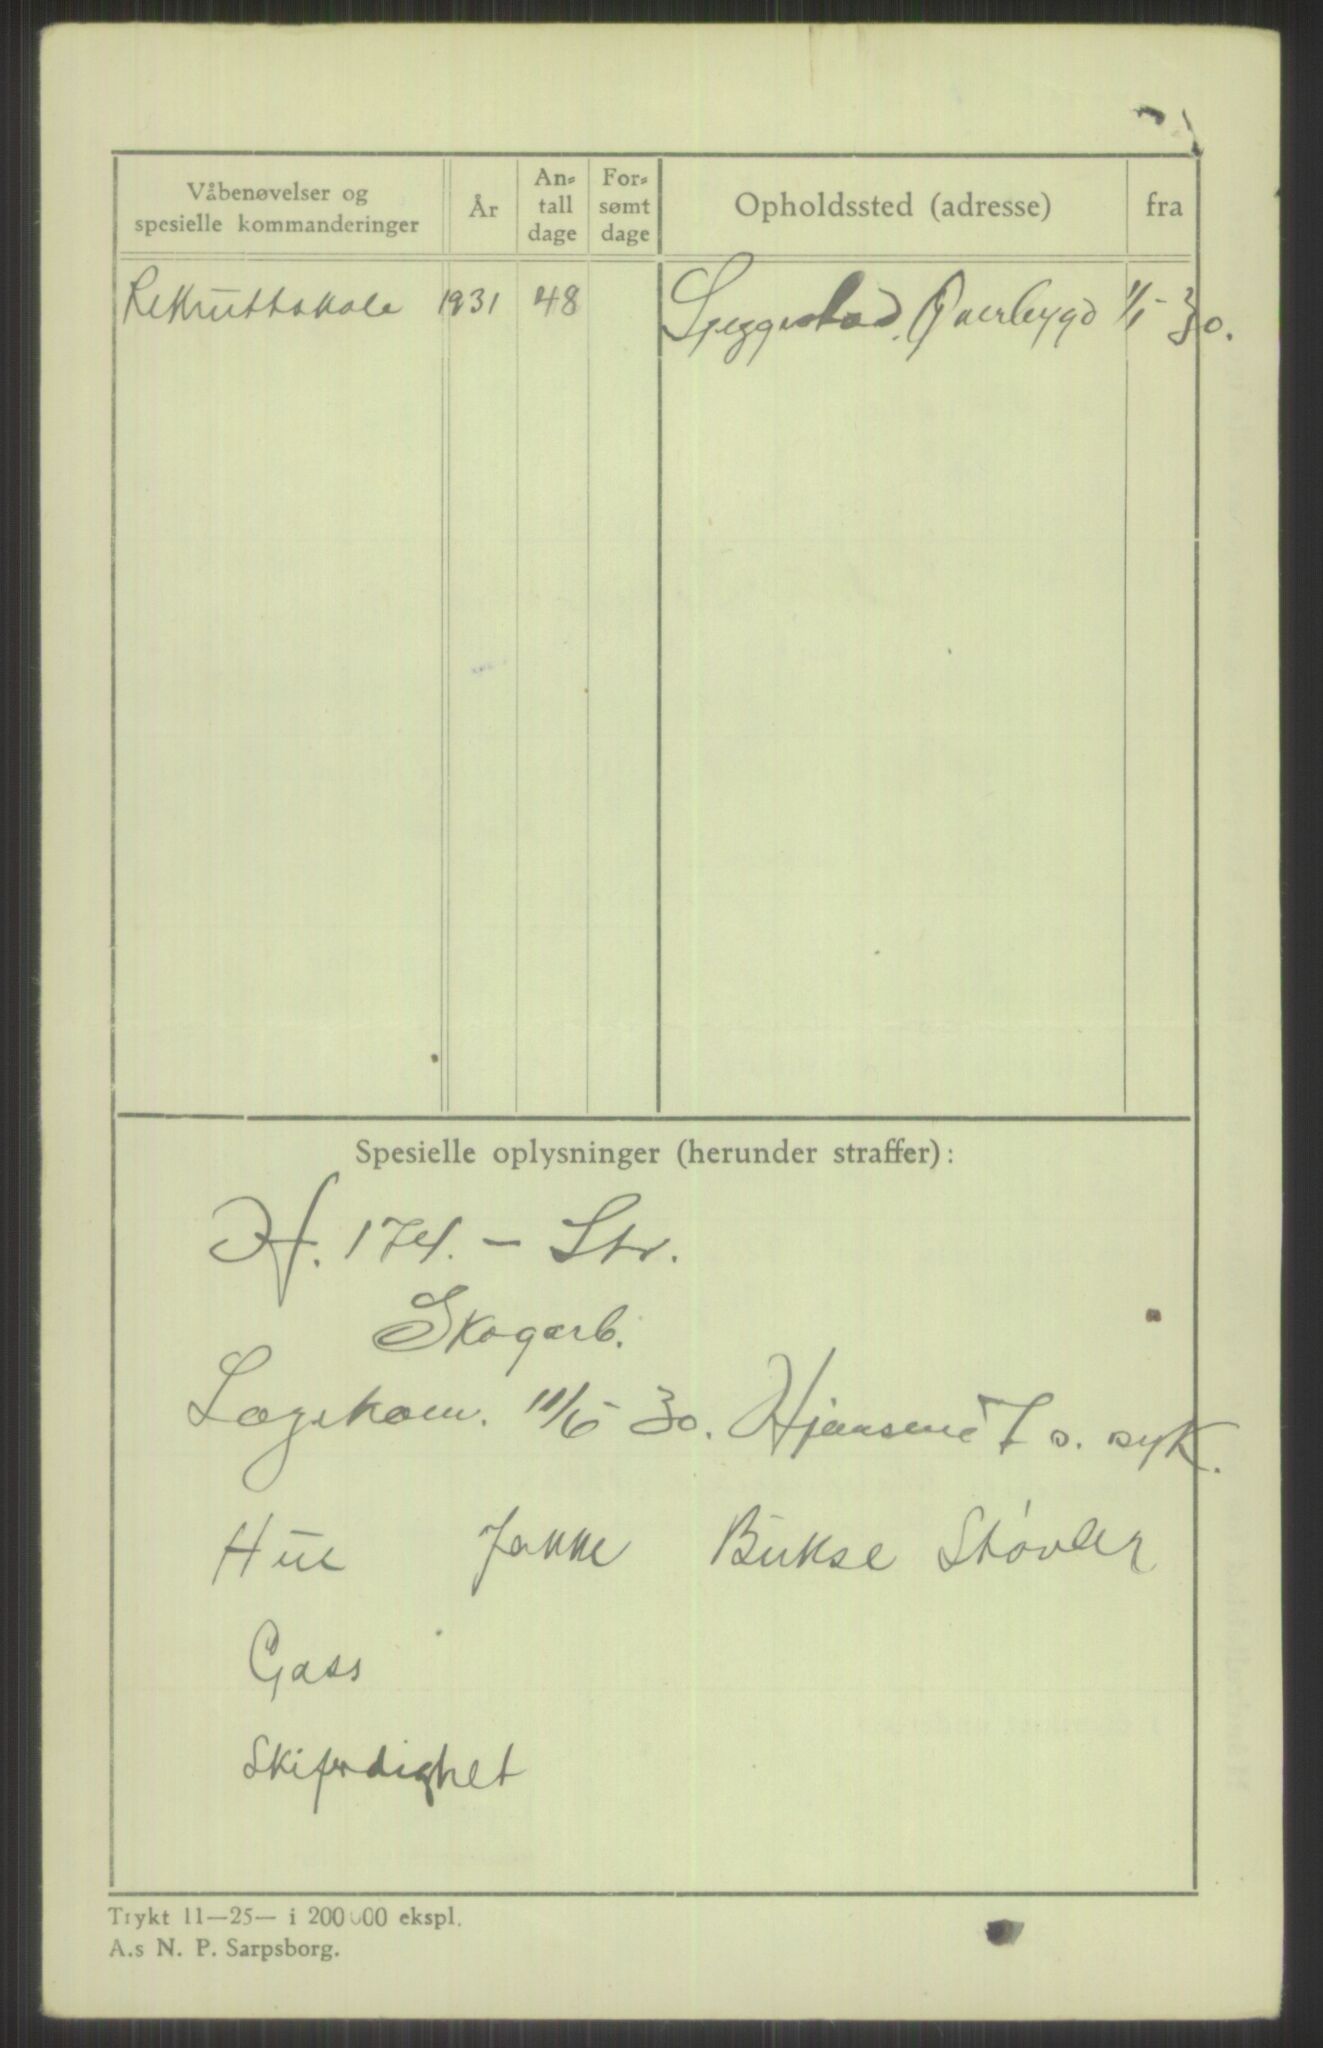 Våbenøvelser og spesielle kommanderinger År An- tall dage For- sømt dage Opholdssted (adresse) fra
Rekruttskole 1931 48 Øverbygd 1/1 - 30.
Spesielle oplysninger (herunder straffer):
H. 174. - Str.
Skogarb.
30. s. syk.
Hue Jakke Bukse Støvler
Gass
Skiferdighet
Trykt 11—25— i 200 000 ekspl.
A.s N. P. Sarpsborg.